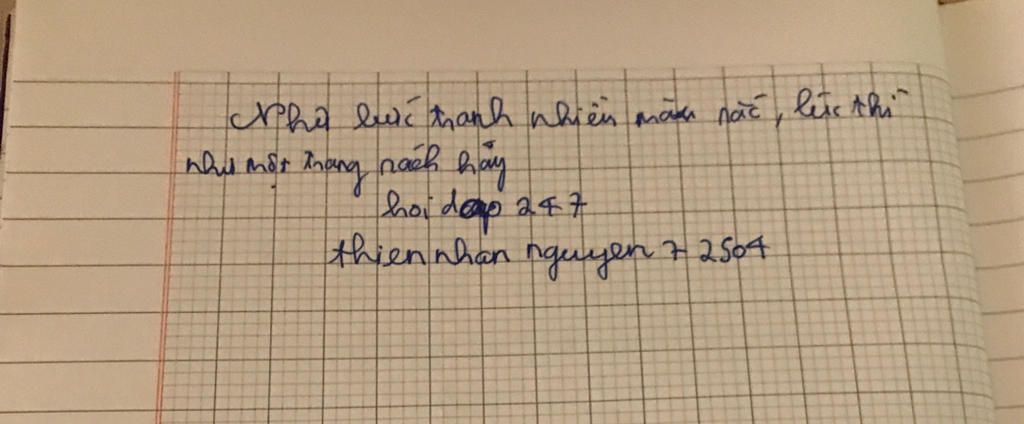 Nhà bức tranh nhiên màu sắc, lúc thì
như một trang sách hay
hoidap 247
thiennhannguyen72504